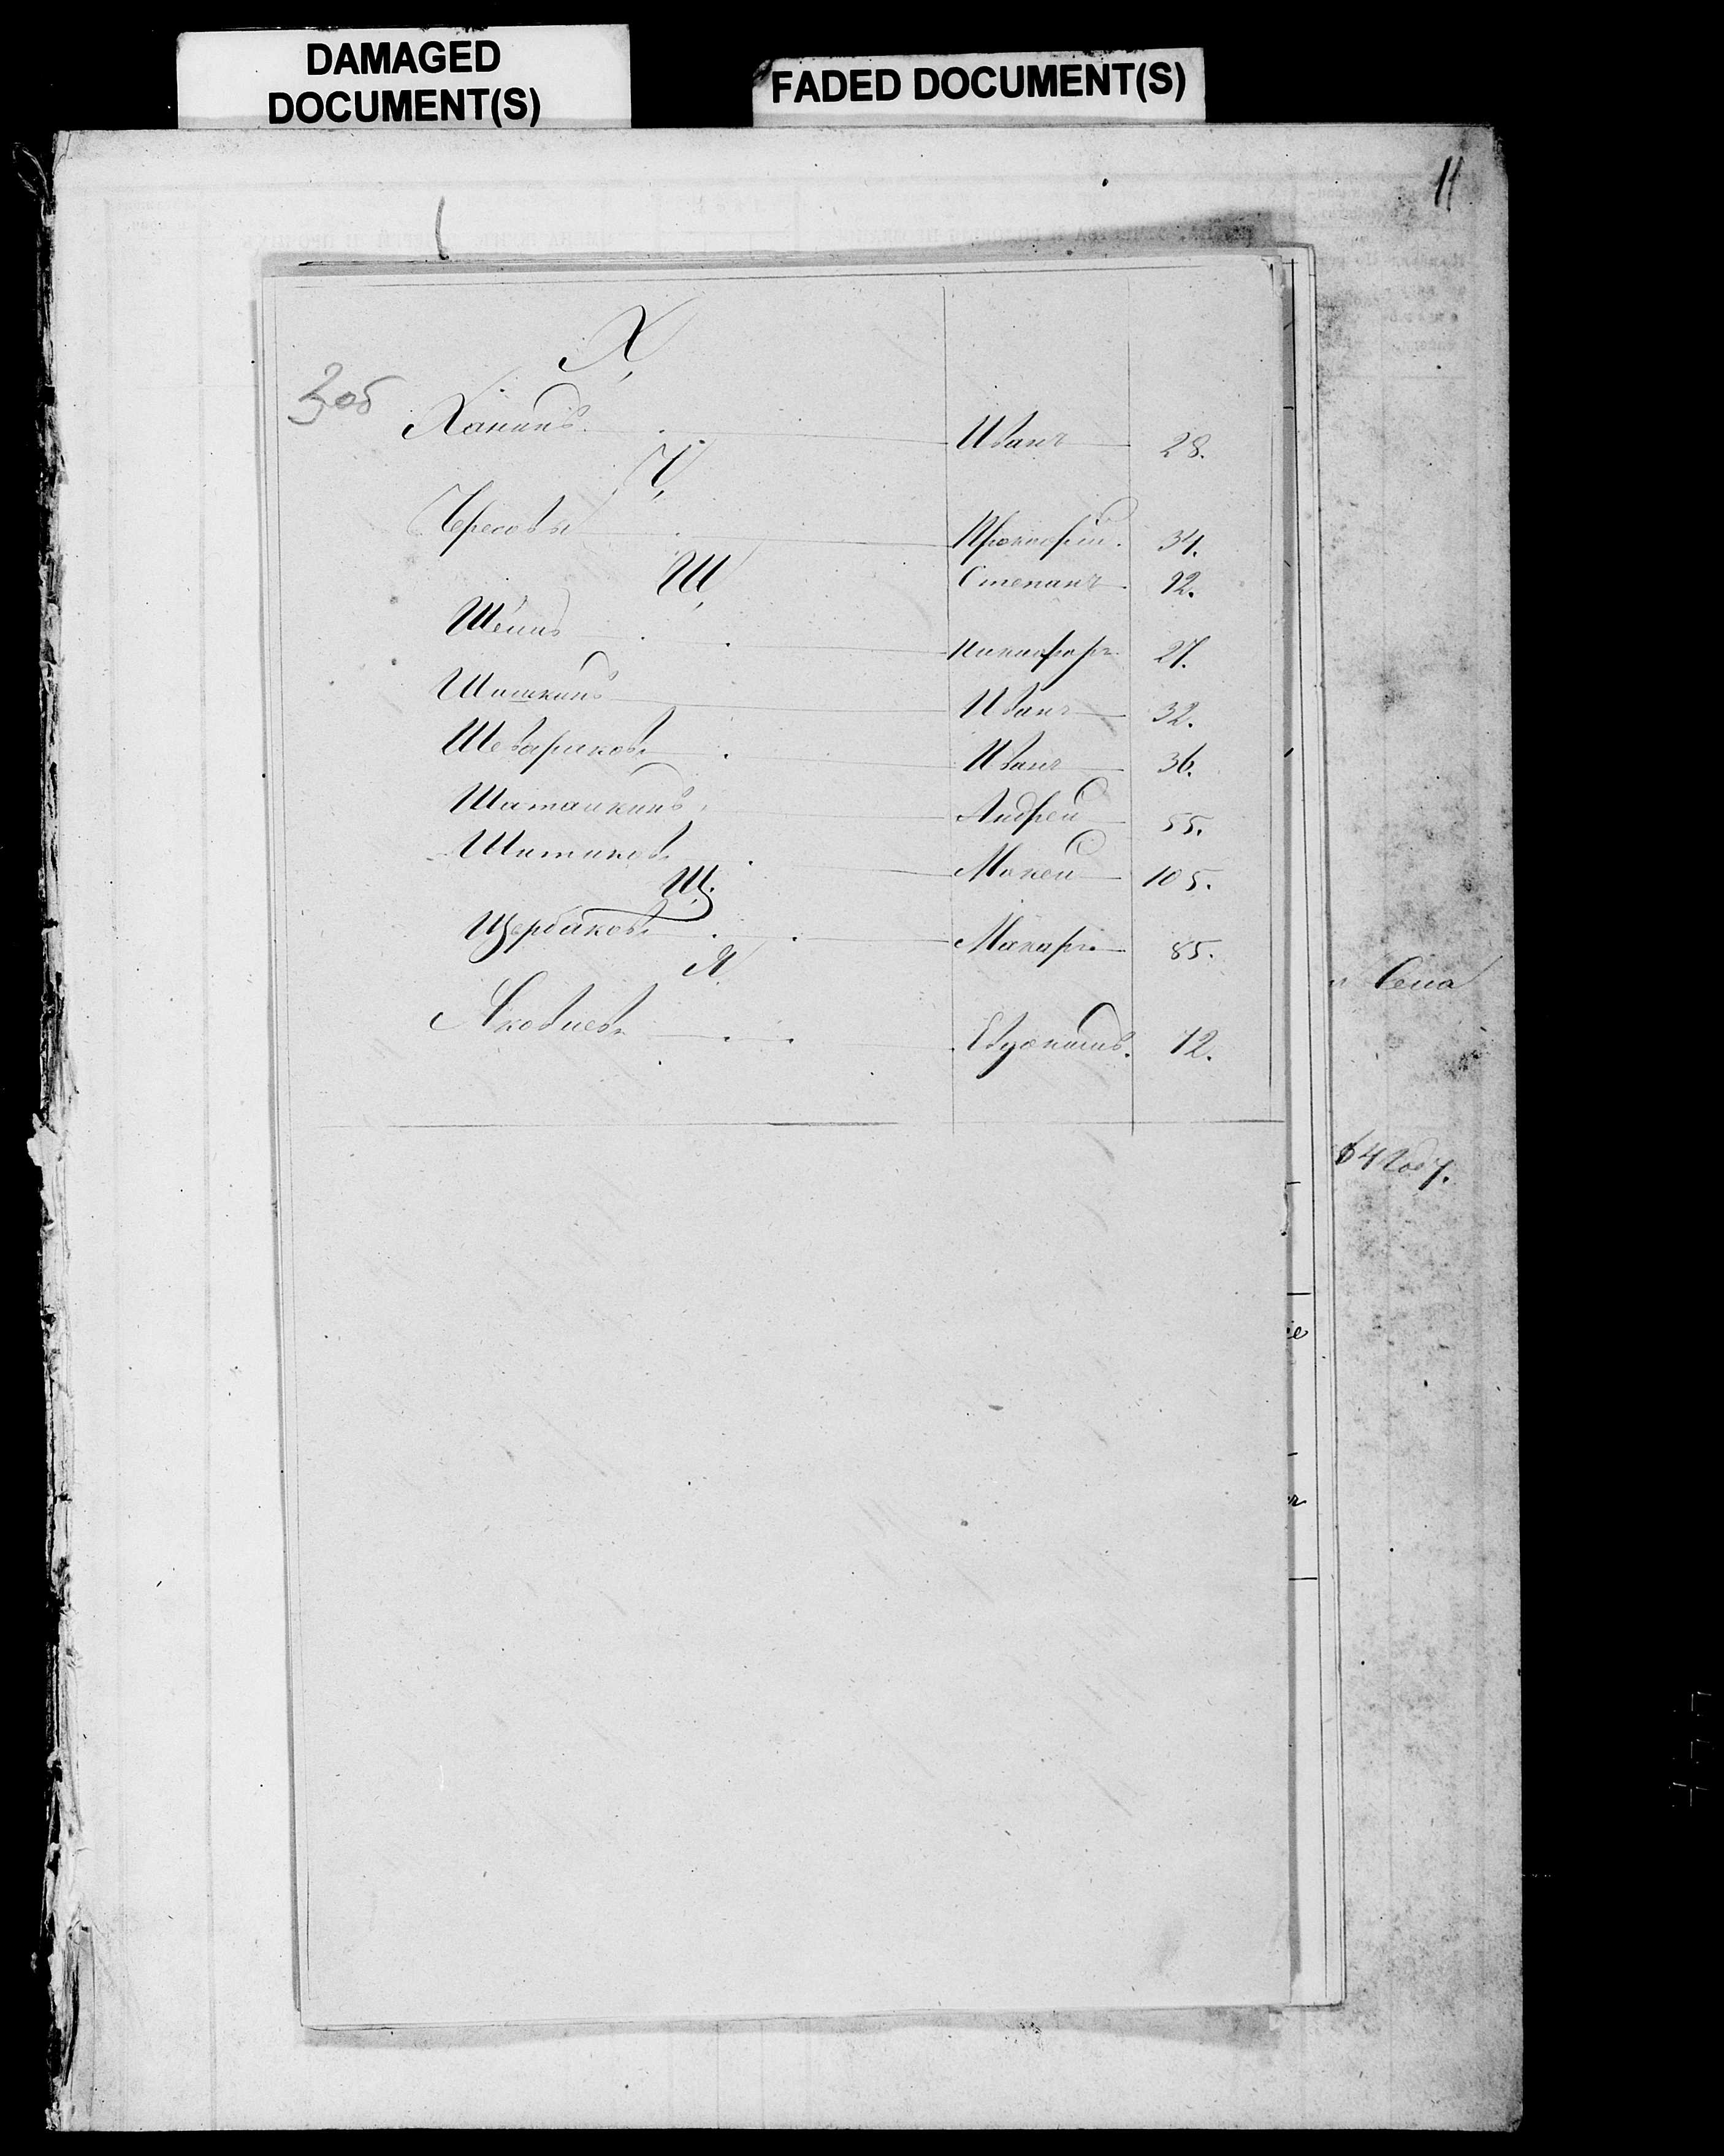 DAMAGED
DOCUMENT(S)
FADED DOCUMENT(S)
11
Х
3об
Ханинъ Иванъ 28.
Ч
Чересовы Прокофій. 34.
Степанъ 92.
Ш
Шеинъ Никифоръ 27.
Шишкинъ Иванъ 32.
Шевариковъ Иванъ 36.
Шаталкинъ Андрей 55.
Шитиковъ Мокей 105.
Щ.
Щербаковъ Макаръ 85.
Я
Яковлевъ Евдокимъ. 72.
Села
64 году.